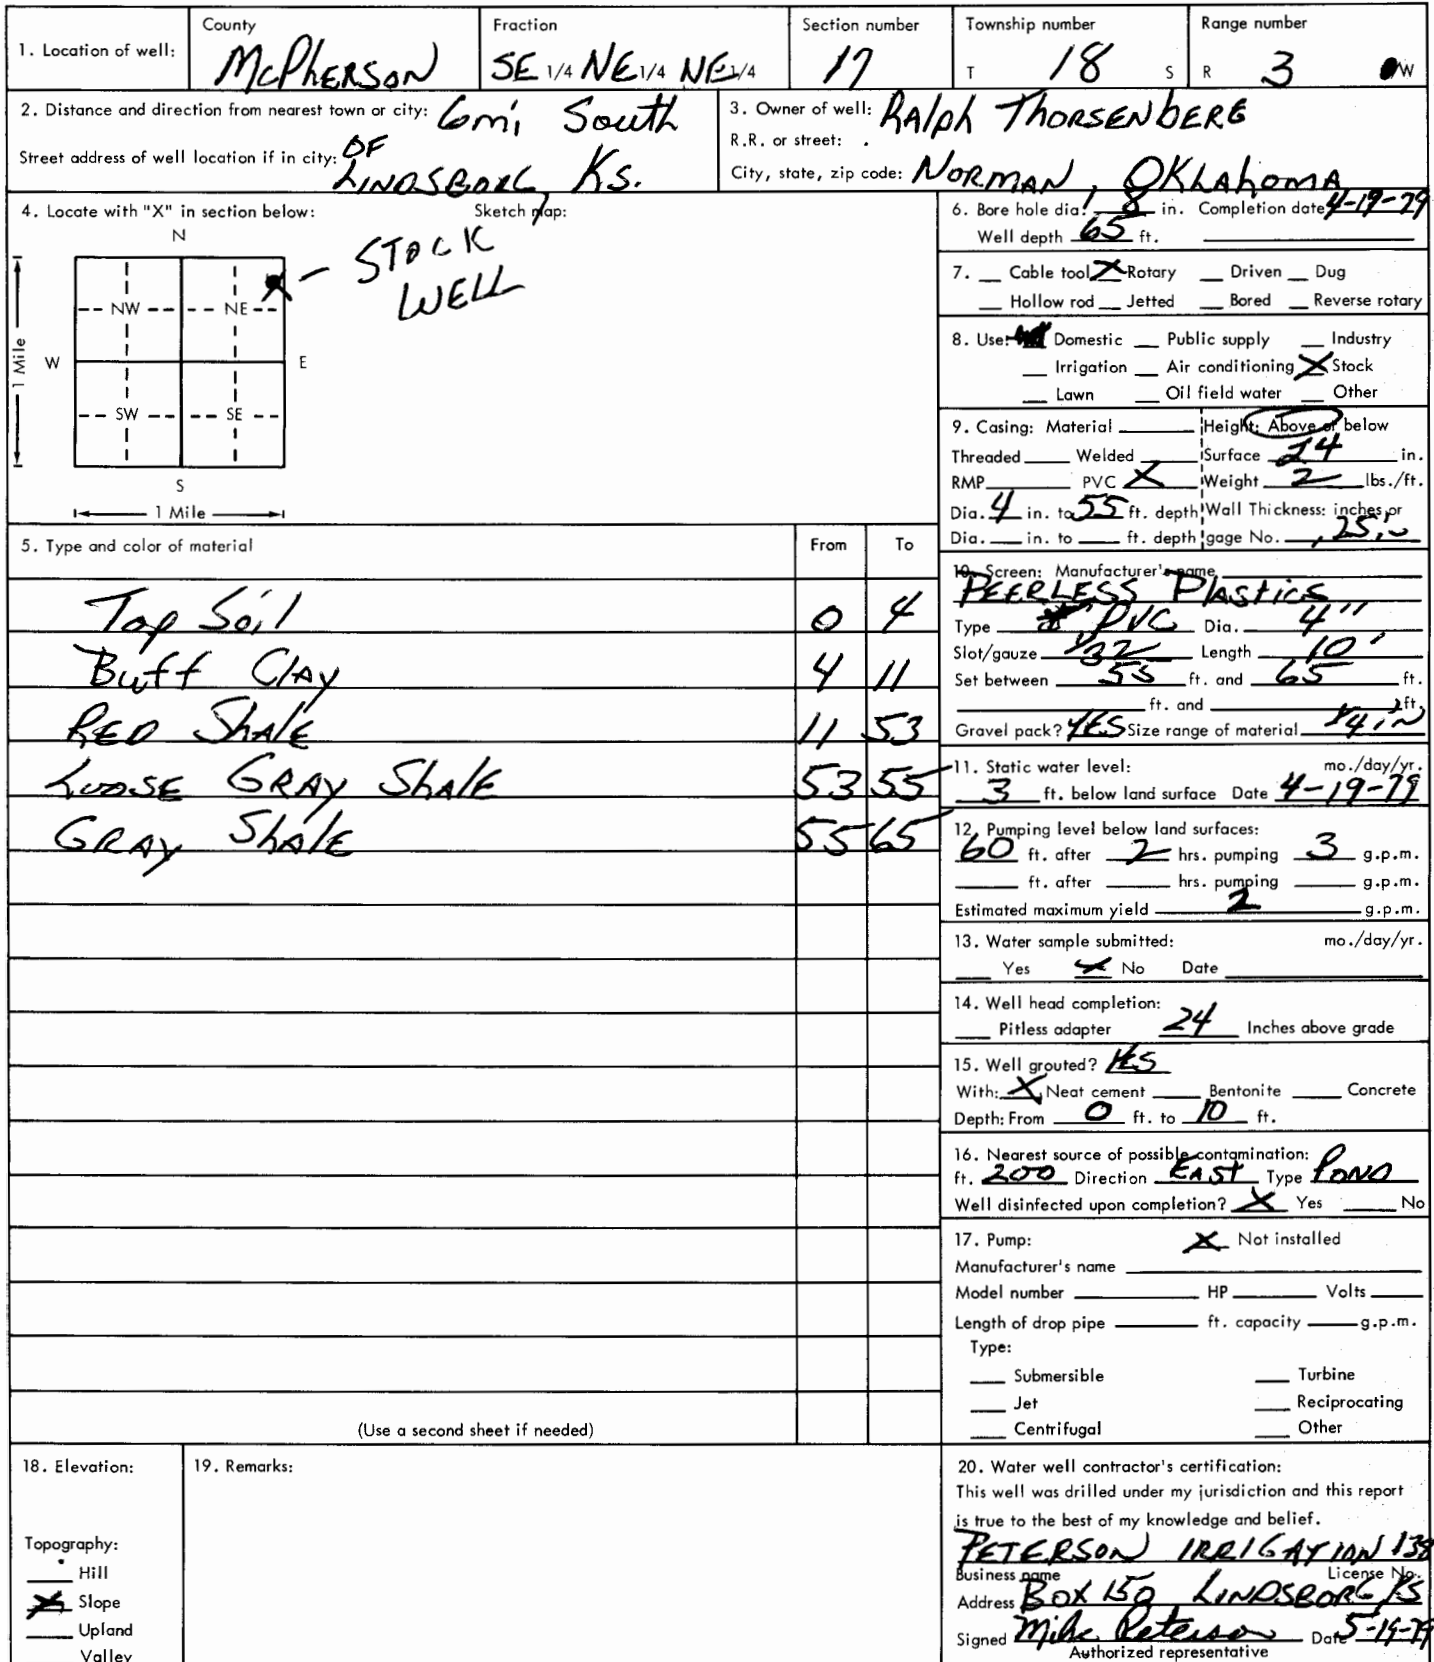 1. Location of well:
County
McPHERSON
Fraction
SE 1/4 NE 1/4 NE 1/4
Section number
17
Township number
T 18 S
Range number
R 3 W
2. Distance and direction from nearest town or city: 6mi South
Street address of well location if in city: OF
LINDSBORG, Ks.
3. Owner of well: RAlph THORSENBERG
R.R. or street:
City, state, zip code: NORMAN, OKLAhOMA
4. Locate with "X" in section below:
Sketch map:
N
NW
NE
W
E
SW
SE
S
1 Mile
1 Mile
X - STOCK
WELL
5. Type and color of material From To
Top Soil 0 4
Buff ClAy 4 11
RED ShAlE 11 53
LOOSE GRAY ShAlE 53 55
GRAY ShAlE 55 65
(Use a second sheet if needed)
6. Bore hole dia. 8 in. Completion date 4-19-79
Well depth 65 ft.
7. Cable tool X Rotary Driven Dug
Hollow rod Jetted Bored Reverse rotary
8. Use: Domestic Public supply Industry
Irrigation Air conditioning X Stock
Lawn Oil field water Other
9. Casing: Material Height: Above or below
Threaded Welded Surface 24 in.
RMP PVC X Weight 2 lbs./ft.
Dia. 4 in. to 55 ft. depth Wall Thickness: inches or
Dia. in. to ft. depth gage No. .25in
10. Screen: Manufacturer's name
PEERLESS PlAsticS
Type PVC Dia. 4"
Slot/gauze 1/32 Length 10'
Set between 55 ft. and 65 ft.
ft. and ft.
Gravel pack? YES Size range of material 1/4 iN
11. Static water level: mo./day/yr.
3 ft. below land surface Date 4-19-79
12. Pumping level below land surfaces:
60 ft. after 2 hrs. pumping 3 g.p.m.
ft. after hrs. pumping g.p.m.
Estimated maximum yield 2 g.p.m.
13. Water sample submitted: mo./day/yr.
Yes X No Date
14. Well head completion:
Pitless adapter 24 Inches above grade
15. Well grouted? YES
With: X Neat cement Bentonite Concrete
Depth: From 0 ft. to 10 ft.
16. Nearest source of possible contamination:
ft. 200 Direction EASt Type POND
Well disinfected upon completion? X Yes No
17. Pump: X Not installed
Manufacturer's name
Model number HP Volts
Length of drop pipe ft. capacity g.p.m.
Type:
Submersible Turbine
Jet Reciprocating
Centrifugal Other
18. Elevation:
Topography:
Hill
X Slope
Upland
Valley
19. Remarks:
20. Water well contractor's certification:
This well was drilled under my jurisdiction and this report
is true to the best of my knowledge and belief.
PETERSON IRRIGATION 138
Business name License No.
Address BOX 150 LINDSBORG, KS
Signed Mike Peterson Date 5-19-79
Authorized representative